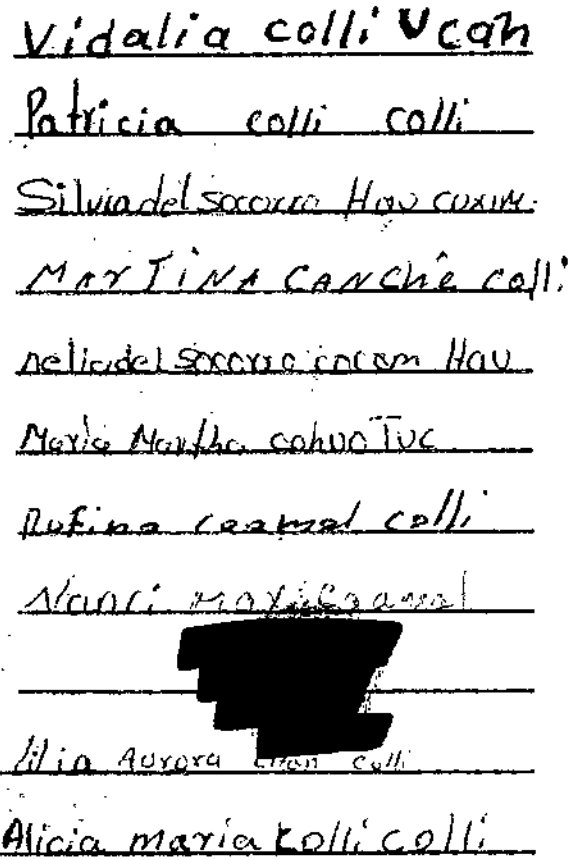 Vidalia colli Ucan
Patricia colli colli
Silvia del socorro Hau cuxim.
MARTINA CANChê colli
nelia del socorro Hau
Maria Martha cohuo Tuc
Rufina colli
Nanci may
Lilia Aurora colli
Alicia maria kolli colli